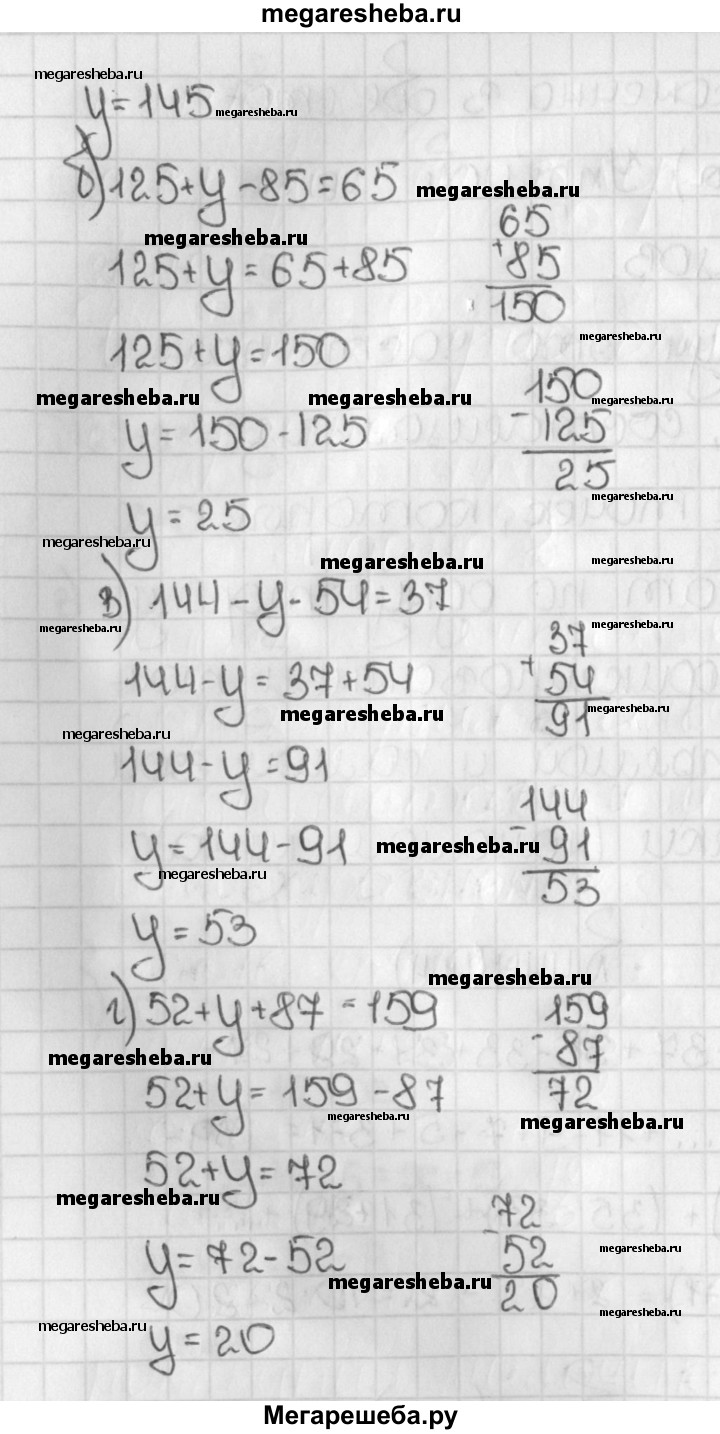 megaresheba.ru
megaresheba.ru
y=145 megaresheba.ru
б) 125+y-85=65 megaresheba.ru
65
megaresheba.ru
125+y=65+85
+85
150
125+y=150
megaresheba.ru
megaresheba.ru megaresheba.ru megaresheba.ru
150
y=150-125
-125
25
megaresheba.ru
y=25
megaresheba.ru
megaresheba.ru megaresheba.ru
в) 144-y-54=37
megaresheba.ru megaresheba.ru
37
144-y=37+54
+54
91
megaresheba.ru megaresheba.ru
megaresheba.ru
144-y=91
144
y=144-91 megaresheba.ru
-91
53
megaresheba.ru
y=53
megaresheba.ru
г) 52+y+87=159
159
-87
72
megaresheba.ru
52+y=159-87
megaresheba.ru megaresheba.ru
52+y=72
megaresheba.ru
72
y=72-52
-52
20
megaresheba.ru
megaresheba.ru
megaresheba.ru
megaresheba.ru
y=20
Мегарешеба.ру